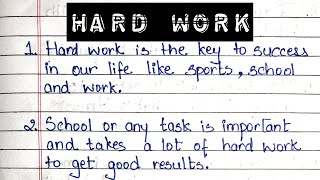 HARD WORK
1. Hard work is the key to success
in our life like sports, school
and work.
2. School or any task is important
and takes a lot of hard work
to get good results.